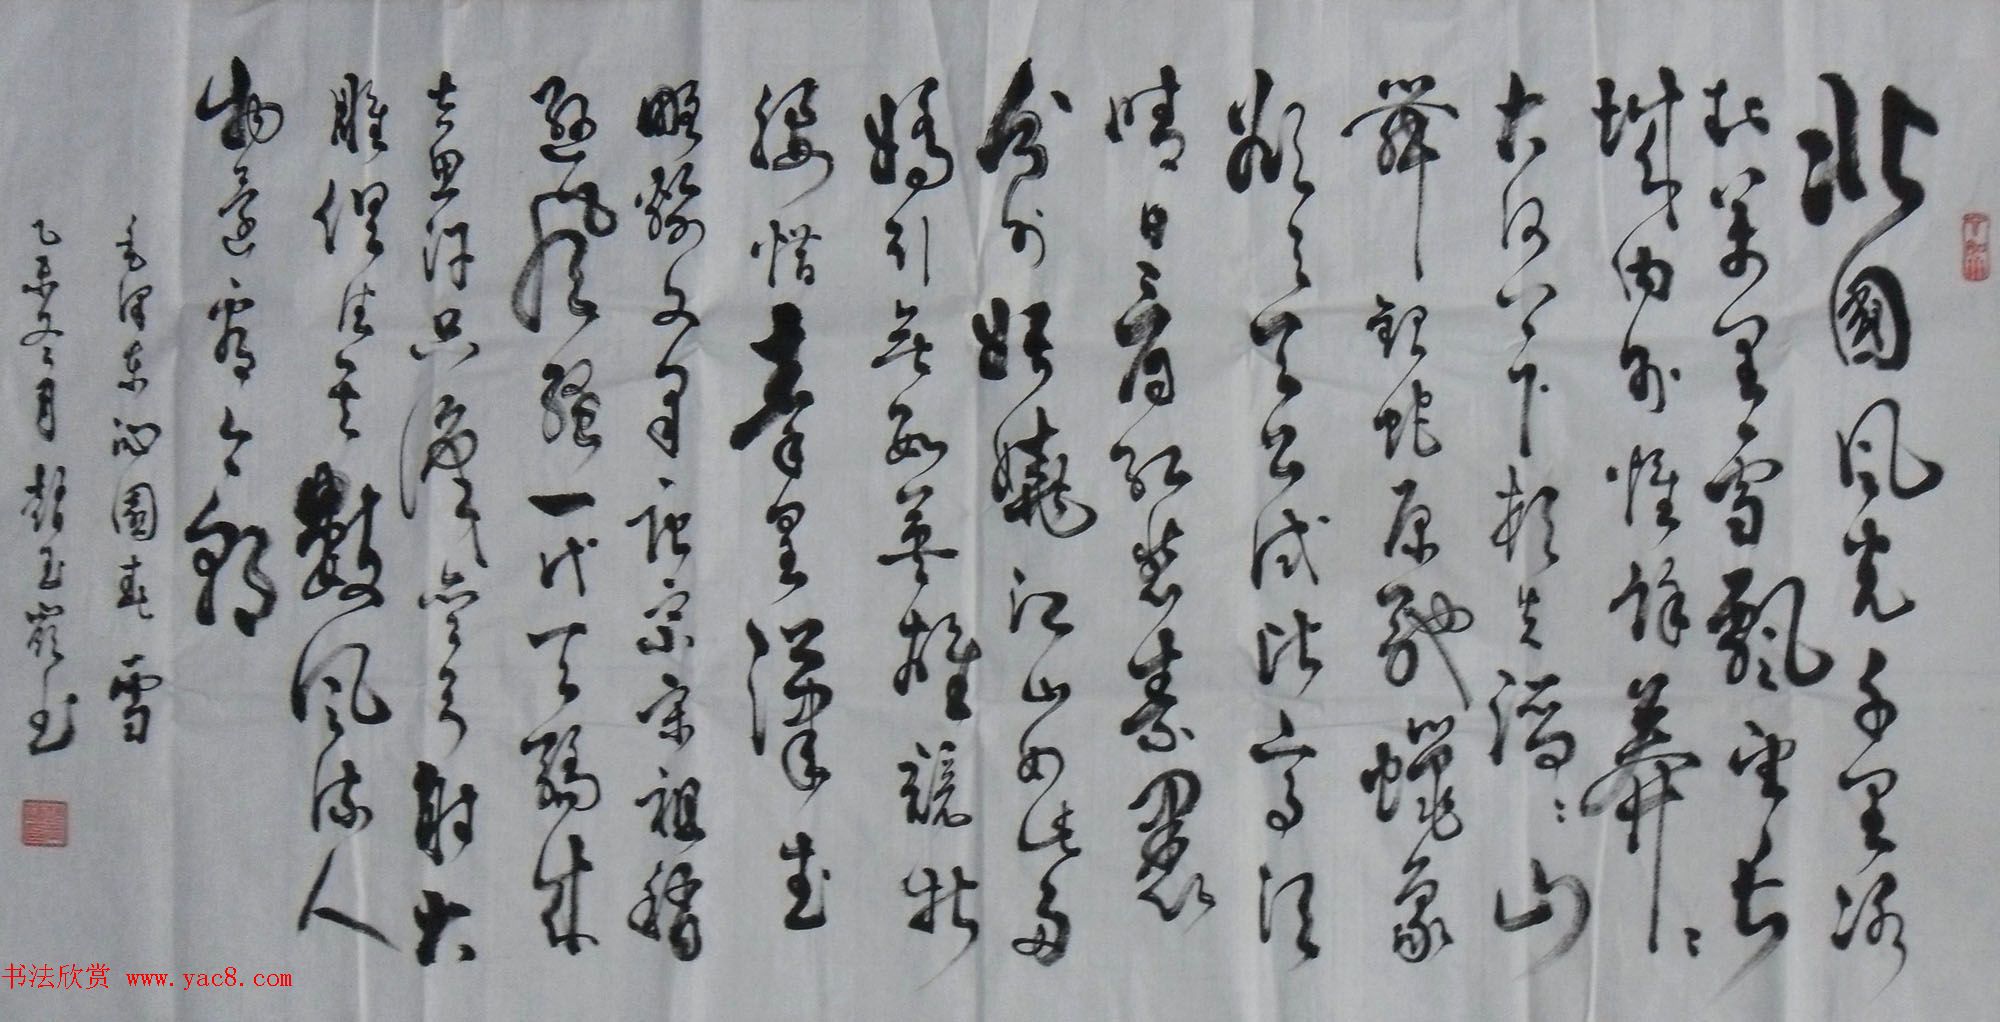 北國风光千里冰
封萬里雪飘望长
城内外惟餘莽々
大河上下顿失滔々山
舞銀蛇原驰蠟象
欲与天公试比高须
晴日看红装素裹
分外妖嬈江山如此多
嬌引無数英雄競折
腰惜秦皇漢武
略输文采唐宗宋祖稍
逊风骚一代天骄成
吉思汗只識弯弓射大
雕俱往矣數风流人
物還看今朝
毛泽东沁園春 雪
乙未冬月 玉嶺书
书法欣赏 www.yac8.com